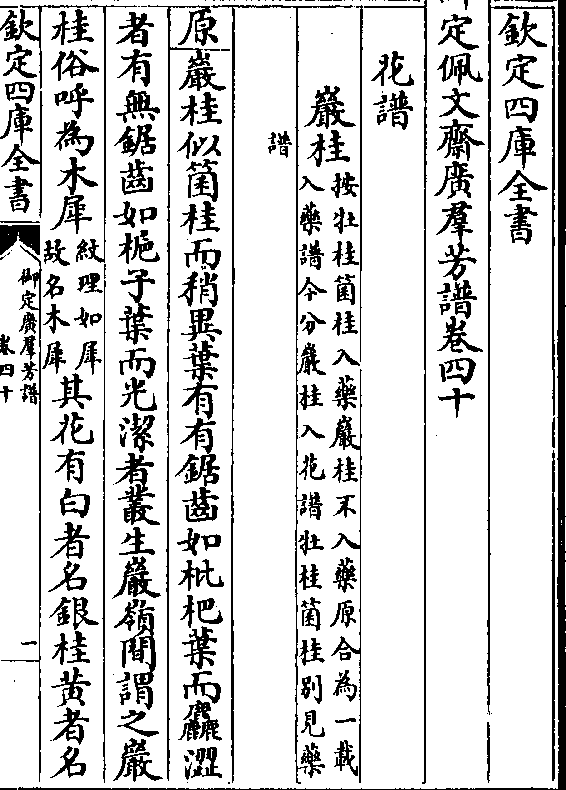 欽定四庫全書
御定佩文齋廣羣芳譜卷四十
花譜
巖桂
按牡桂箘桂入藥巖桂不入藥原合為一載
入藥譜今分巖桂入花譜牡桂箘桂別見藥
譜
原巖桂似箘桂而稍異葉有有鋸齒如枇杷葉而麤澀
者有無鋸齒如梔子葉而光潔者叢生巖嶺間謂之巖
桂俗呼為木犀
紋理如犀
故名木犀
其花有白者名銀桂黄者名
欽定四庫全書
御定廣羣芳譜
卷四十
一